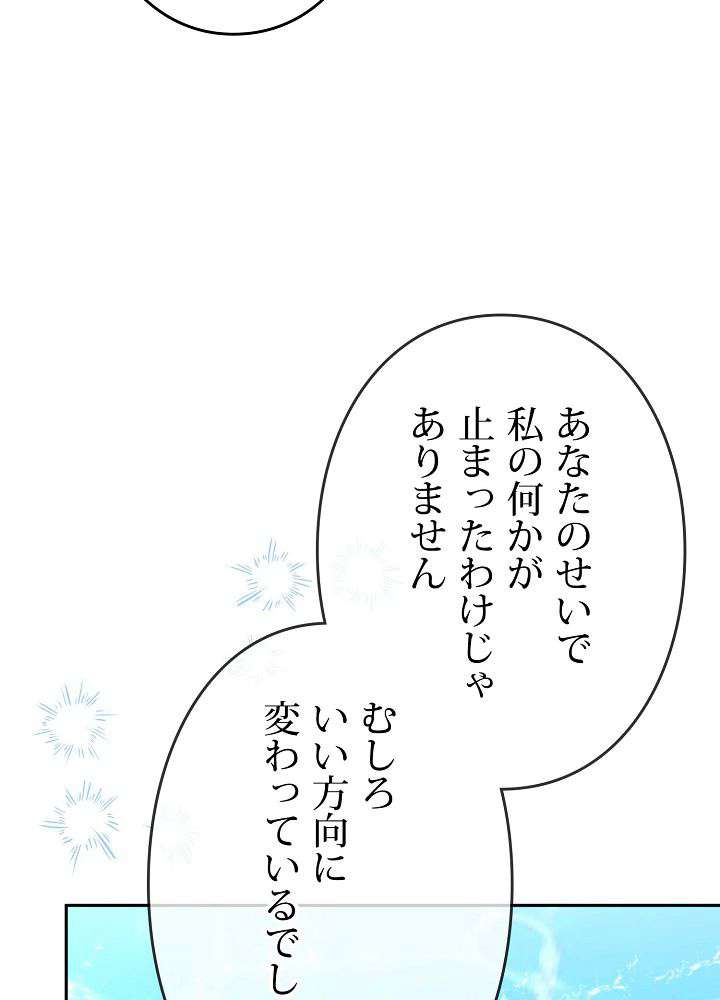 あなたのせいで
私の何かが
止まったわけじゃ
ありません
むしろ
いい方向に
変わっているでし